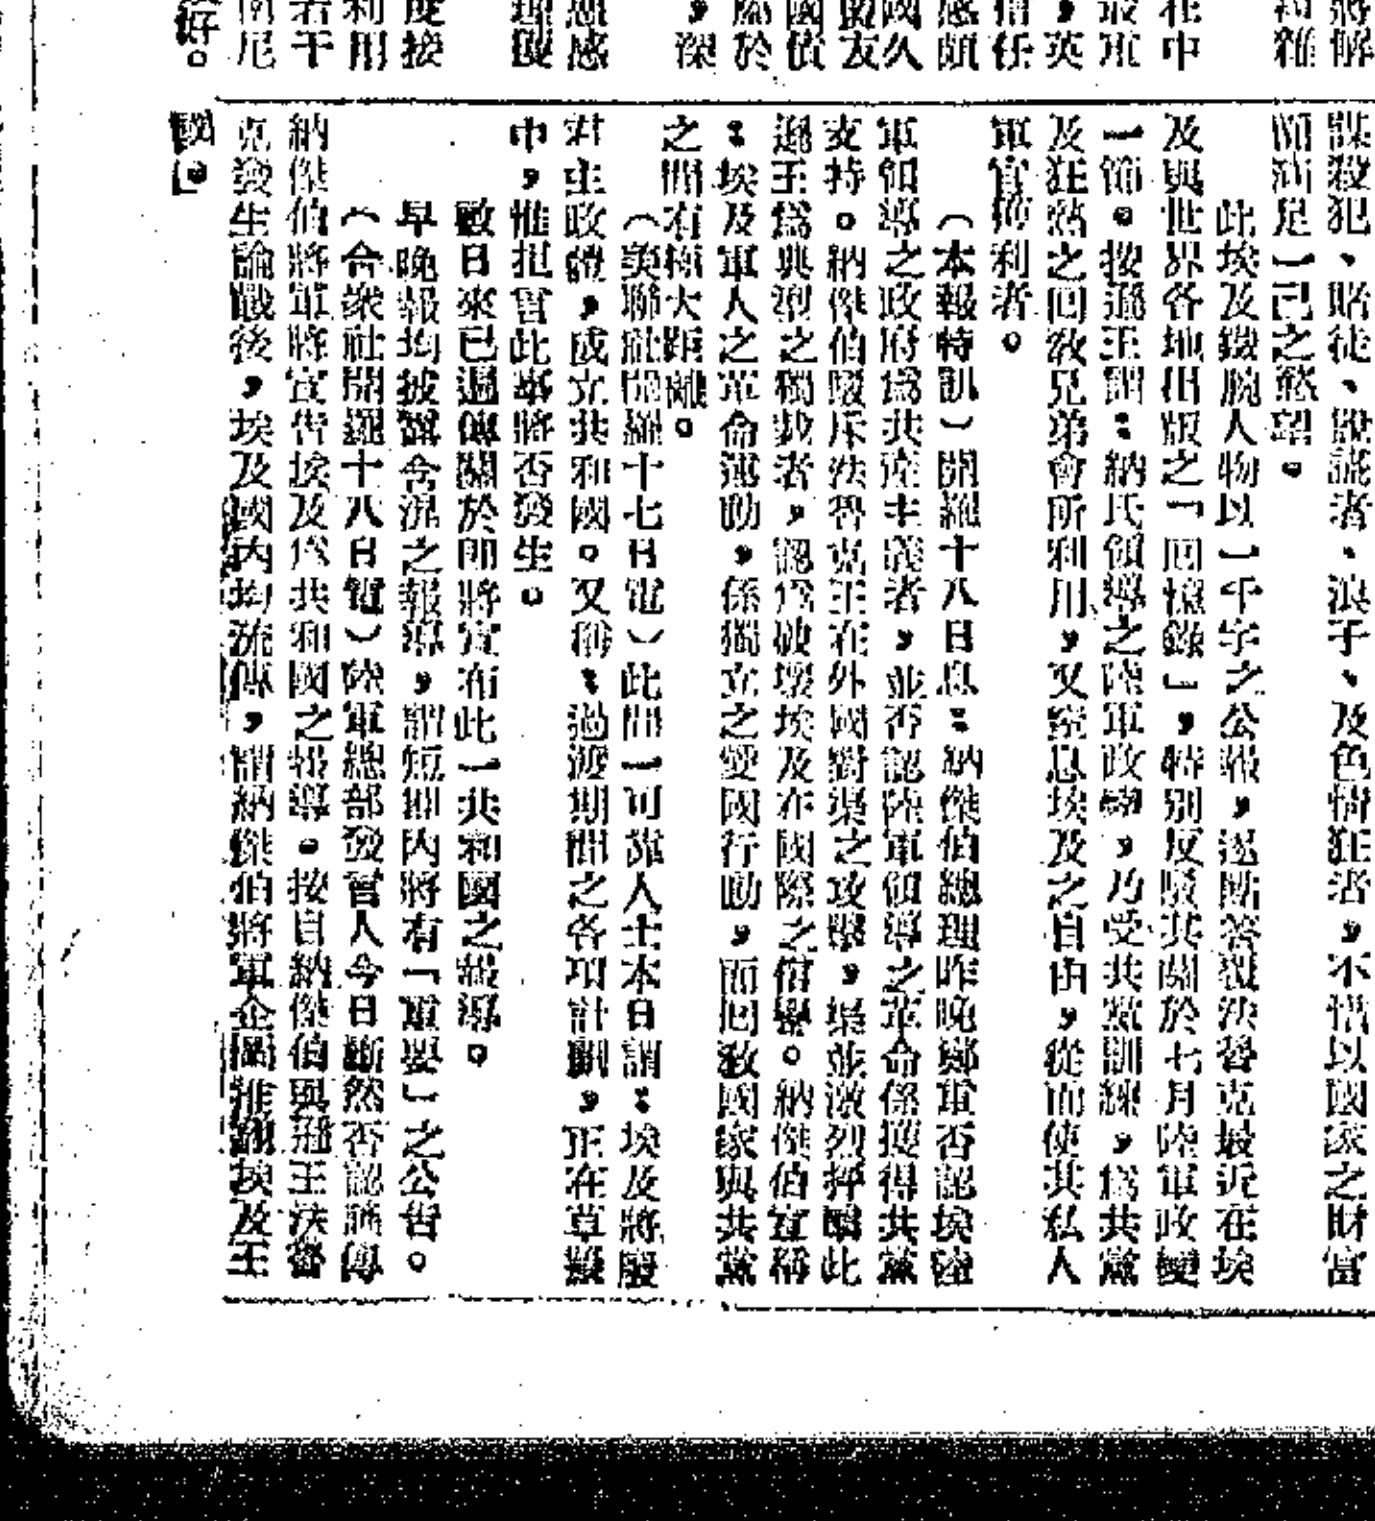 將解
雜
在中
最重
，英
信任
感頗
國久
盟友
國債
屬於
，深
感
理援
度接
利用
若干
尼
好。
謀殺犯、賭徒、說謊者、浪子、及色情狂者，不惜以國家之財富
而滿足一己之慾望。
此埃及鐵腕人物以一千字之公報，逐點答覆法魯克最近在埃
及與世界各地出版之「回憶錄」，特別反駁其關於七月陸軍政變
一節。按遜王謂：納氏領導之陸軍政變，乃受共黨訓練，為共黨
及狂熱之回教兄弟會所利用，又窒息埃及之自由，從而使其私人
軍官獲利者。
（本報特訊）開羅十八日息：納傑伯總理昨晚鄭重否認埃陸
軍領導之政府為共產主義者，並否認陸軍領導之革命係獲得共黨
支持。納傑伯駁斥法魯克王在外國對渠之攻擊，渠並激烈抨擊此
遜王為典型之獨裁者，認為破壞埃及在國際之信譽。納傑伯宣稱
：埃及軍人之革命運動，係獨立之愛國行動，而回教國家與共黨
之間有極大距離。
（美聯社開羅十七日電）此間一可靠人士本日謂：埃及將廢
君主政體，成立共和國。又稱：過渡期間之各項計劃，正在草擬
中，惟拒言此事將否發生。
數日來已遍傳關於即將宣布此一共和國之報導。
早晚報均披露今混之報導，謂短期內將有「重要」之公告。
（合衆社開羅十八日電）陸軍總部發言人今日斷然否認謠傳
納傑伯將軍將宣告埃及為共和國之報導。按自納傑伯與遜王法魯
克發生論戰後，埃及國內均流傳，謂納傑伯將軍企圖推翻埃及王
國。